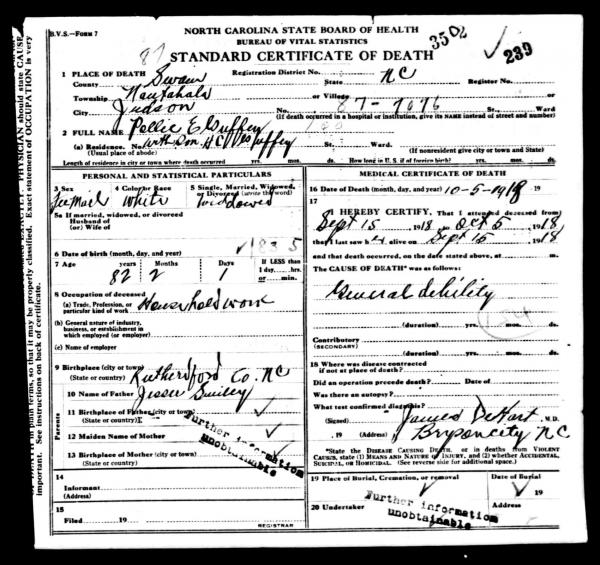 B.V.S.—FORM 7
NORTH CAROLINA STATE BOARD OF HEALTH
BUREAU OF VITAL STATISTICS
STANDARD CERTIFICATE OF DEATH
3502
239
87
1 PLACE OF DEATH
Registration District No.
County Swain
State NC
Register No.
Township Nantahala
or Village
City Judson
No. 87-7076
St.,
Ward
(If death occurred in a hospital or institution, give its NAME instead of street and number)
2 FULL NAME Pellie E Guffey
(a) Residence. No. with Son HC Guffey
St.
Ward.
(If nonresident give city or town and State)
Length of residence in city or town where death occurred yrs. mos. ds.
How long in U. S., if of foreign birth? yrs. mos. ds.
PERSONAL AND STATISTICAL PARTICULARS
3 Sex
4 Color or Race
5 Single, Married, Widowed, or Divorced (write the word)
Femael White Widdowed
5a If married, widowed, or divorced
Husband of
(or) Wife of
6 Date of birth (month, day, and year) 1835
7 Age years Months Days
If LESS than
1 day, ....hrs.
or ....min.
82 2 1
8 Occupation of deceased
(a) Trade, Profession, or
particular kind of work
Household work
(b) General nature of industry,
business, or establishment in
which employed (or employer)
(c) Name of employer
9 Birthplace (city or town)
(State or country)
Rutherdford Co. NC
10 Name of Father Jesse
Parents
11 Birthplace of Father (city or town)
(State or country)
12 Maiden Name of Mother
13 Birthplace of Mother (city or town)
(State or country)
Further information
unobtainable
14
Informant
(Address)
15
Filed 19
REGISTRAR
MEDICAL CERTIFICATE OF DEATH
16 Date of Death (month, day, and year) 10-5-1918 19
17
I HEREBY CERTIFY, That I attended deceased from
Sept 15 1918 to Oct 5 1918
that I last saw her alive on Sept 15 1918
and that death occurred, on the date stated above, at m.
The CAUSE OF DEATH* was as follows:
General debility
(duration) yrs. mos. ds.
Contributory
(SECONDARY)
(duration) yrs. mos. ds.
18 Where was disease contracted
if not at place of death?
Did an operation precede death? Date of
Was there an autopsy?
What test confirmed diagnosis?
(Signed) James DeHart M.D.
, 19 (Address) Brysoncity NC
*State the DISEASE CAUSING DEATH, or in deaths from VIOLENT
CAUSES, state (1) MEANS AND NATURE OF INJURY, and (2) whether ACCIDENTAL,
SUICIDAL, or HOMICIDAL. (See reverse side for additional space.)
19 Place of Burial, Cremation, or removal
Date of Burial
19
20 Undertaker
Further information
unobtainable
PHYSICIAN should state CAUSE
Exact statement of OCCUPATION is very
in plain terms, so that it may be properly classified.
important. See instructions on back of certificate.